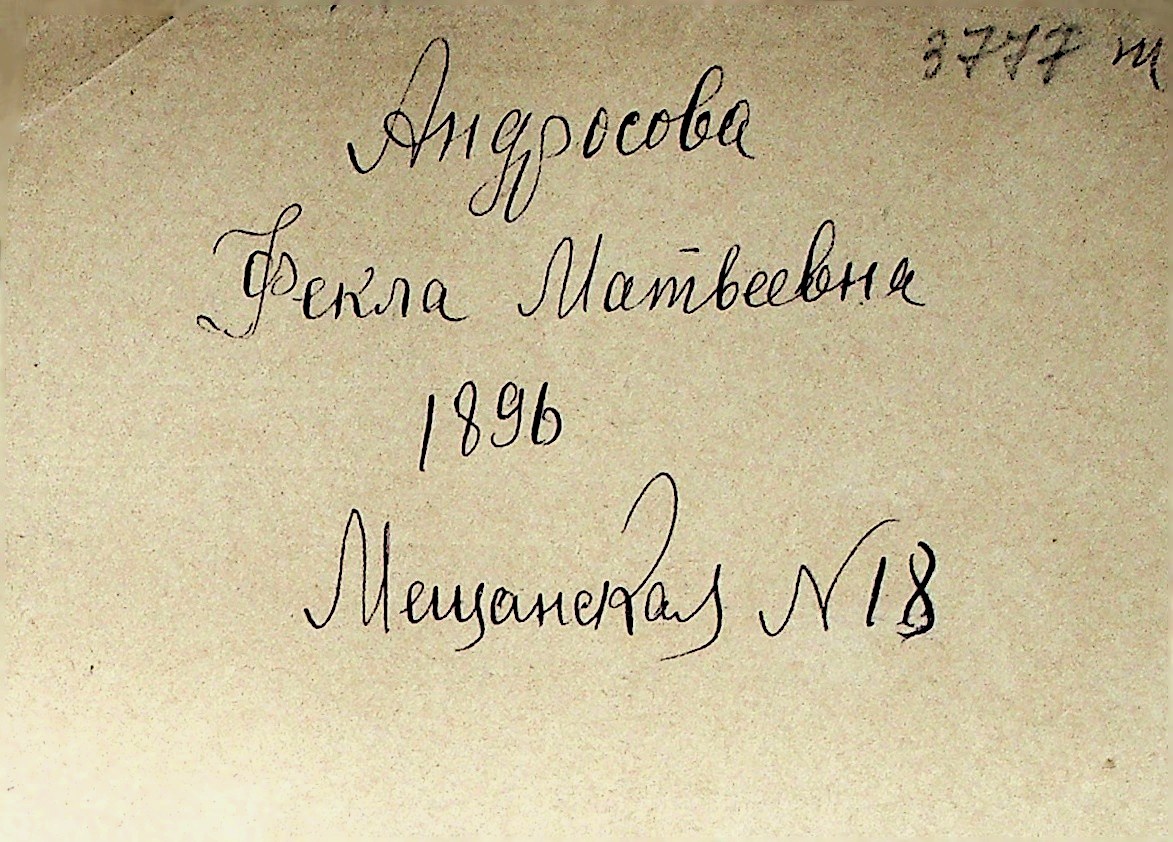 3777 т
Андросова
Фекла Матвеевна
1896
Мещанская N 18